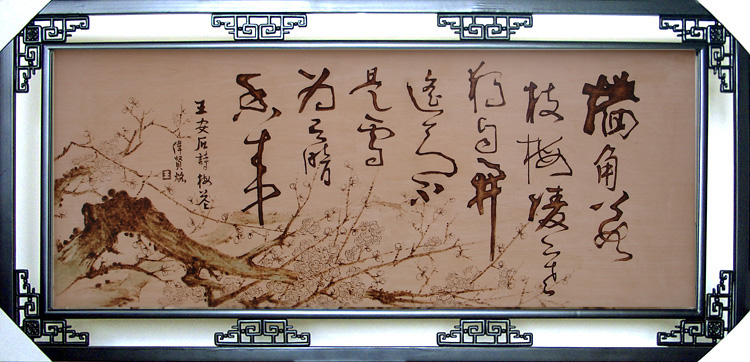 墙角数
枝梅凌寒
独自开
遥知不
是雪
为有暗
香来
王安石詩梅花
偉賢烙